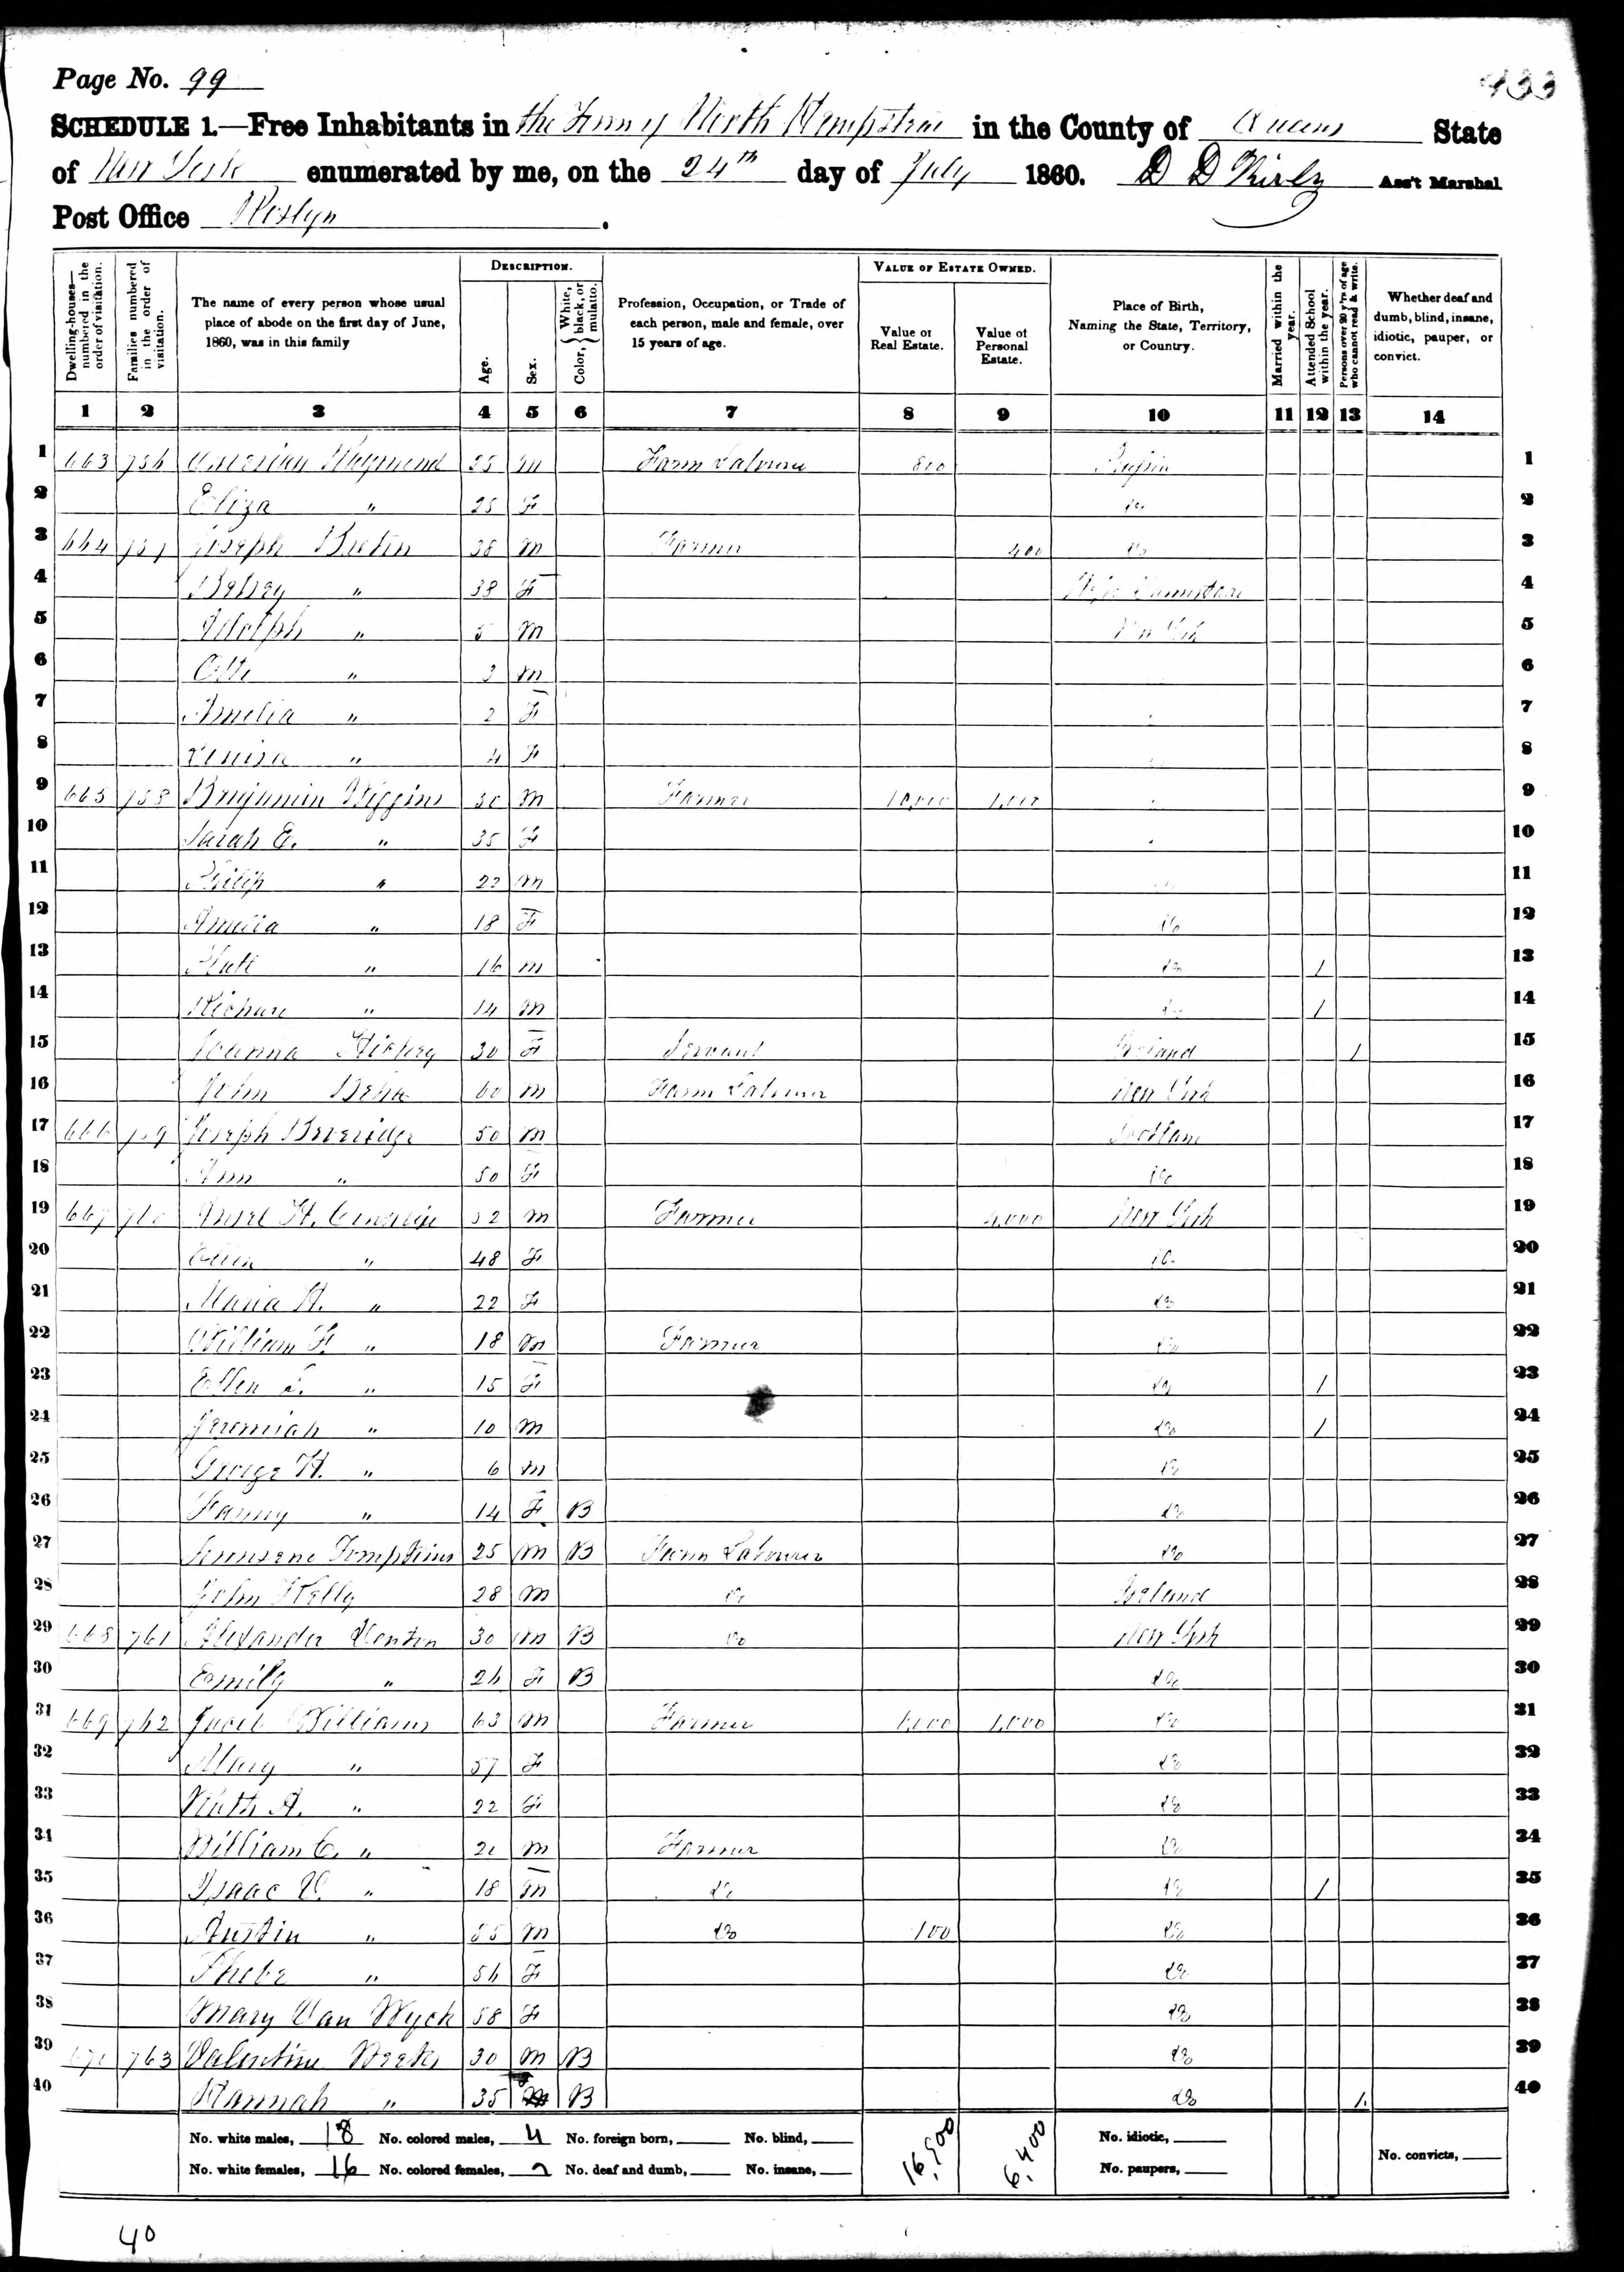 Page No. 99
433
SCHEDULE 1.—Free Inhabitants in the Town of North Hempstead in the County of Queens State
of New York enumerated by me, on the 24th day of July 1860. D D Kirby Ass't Marshal
Post Office Roslyn.
Dwelling-houses—numbered in the order of visitation.
Families numbered in the order of visitation.
The name of every person whose usual place of abode on the first day of June, 1860, was in this family
DESCRIPTION.
Age.
Sex.
Color, { White, black, or mulatto.
Profession, Occupation, or Trade of each person, male and female, over 15 years of age.
VALUE OF ESTATE OWNED.
Value of Real Estate.
Value of Personal Estate.
Place of Birth, Naming the State, Territory, or Country.
Married within the year.
Attended School within the year.
Persons over 20 y'rs of age who cannot read & write.
Whether deaf and dumb, blind, insane, idiotic, pauper, or convict.
1 2 3 4 5 6 7 8 9 10 11 12 13 14
1 663 756 Raymond 25 M Farm Labourer 800 Prussia 1
2 Eliza " 25 F do 2
3 664 757 Joseph 38 M Farmer 400 do 3
4 Betsey " 38 F 4
5 Adolph " 5 M New York 5
6 Otto " 3 M 6
7 Amelia " 2 F 7
8 Louisa " 4 F 8
9 665 758 Benjamin Wiggins 50 M Farmer 10,000 1,000 9
10 Sarah E. " 35 F 10
11 Philip " 22 M 11
12 Amelia " 18 F do 12
13 " 16 M do / 13
14 Richard " 14 M do / 14
15 Joanna 30 F Servant Ireland / 15
16 John 60 M Farm Labourer New York 16
17 666 759 Joseph Beveridge 50 M Scotland 17
18 Ann " 50 F do 18
19 667 760 H. 52 M Farmer 4,000 New York 19
20 Ellen " 48 F do 20
21 Maria H. " 22 F do 21
22 William F. " 18 M Farmer do 22
23 Ellen L. " 15 F do / 23
24 Jeremiah " 10 M do / 24
25 George H. " 6 M do 25
26 Fanny " 14 F B do 26
27 Tompkins 25 M B Farm Labourer do 27
28 John Kelly 28 M do Ireland 28
29 668 761 Alexander 30 M B do New York 29
30 Emily " 26 F B do 30
31 669 762 Jacob Williams 63 M Farmer 1,000 do 31
32 Mary " 57 F do 32
33 Ruth A. " 22 F do 33
34 William C. " 21 M Farmer do 34
35 Isaac V. " 18 M do do / 35
36 Austin " 55 M do 100 do 36
37 Phebe " 56 F do 37
38 Mary Van Wyck 58 F do 38
39 670 763 Valentine Weeks 30 M B do 39
40 Hannah " 35 B do 1. 40
No. white males, 18 No. colored males, 4 No. foreign born, No. blind,
No. white females, 16 No. colored females, 2 No. deaf and dumb, No. insane,
16,900
6,400
No. idiotic,
No. paupers,
No. convicts,
40